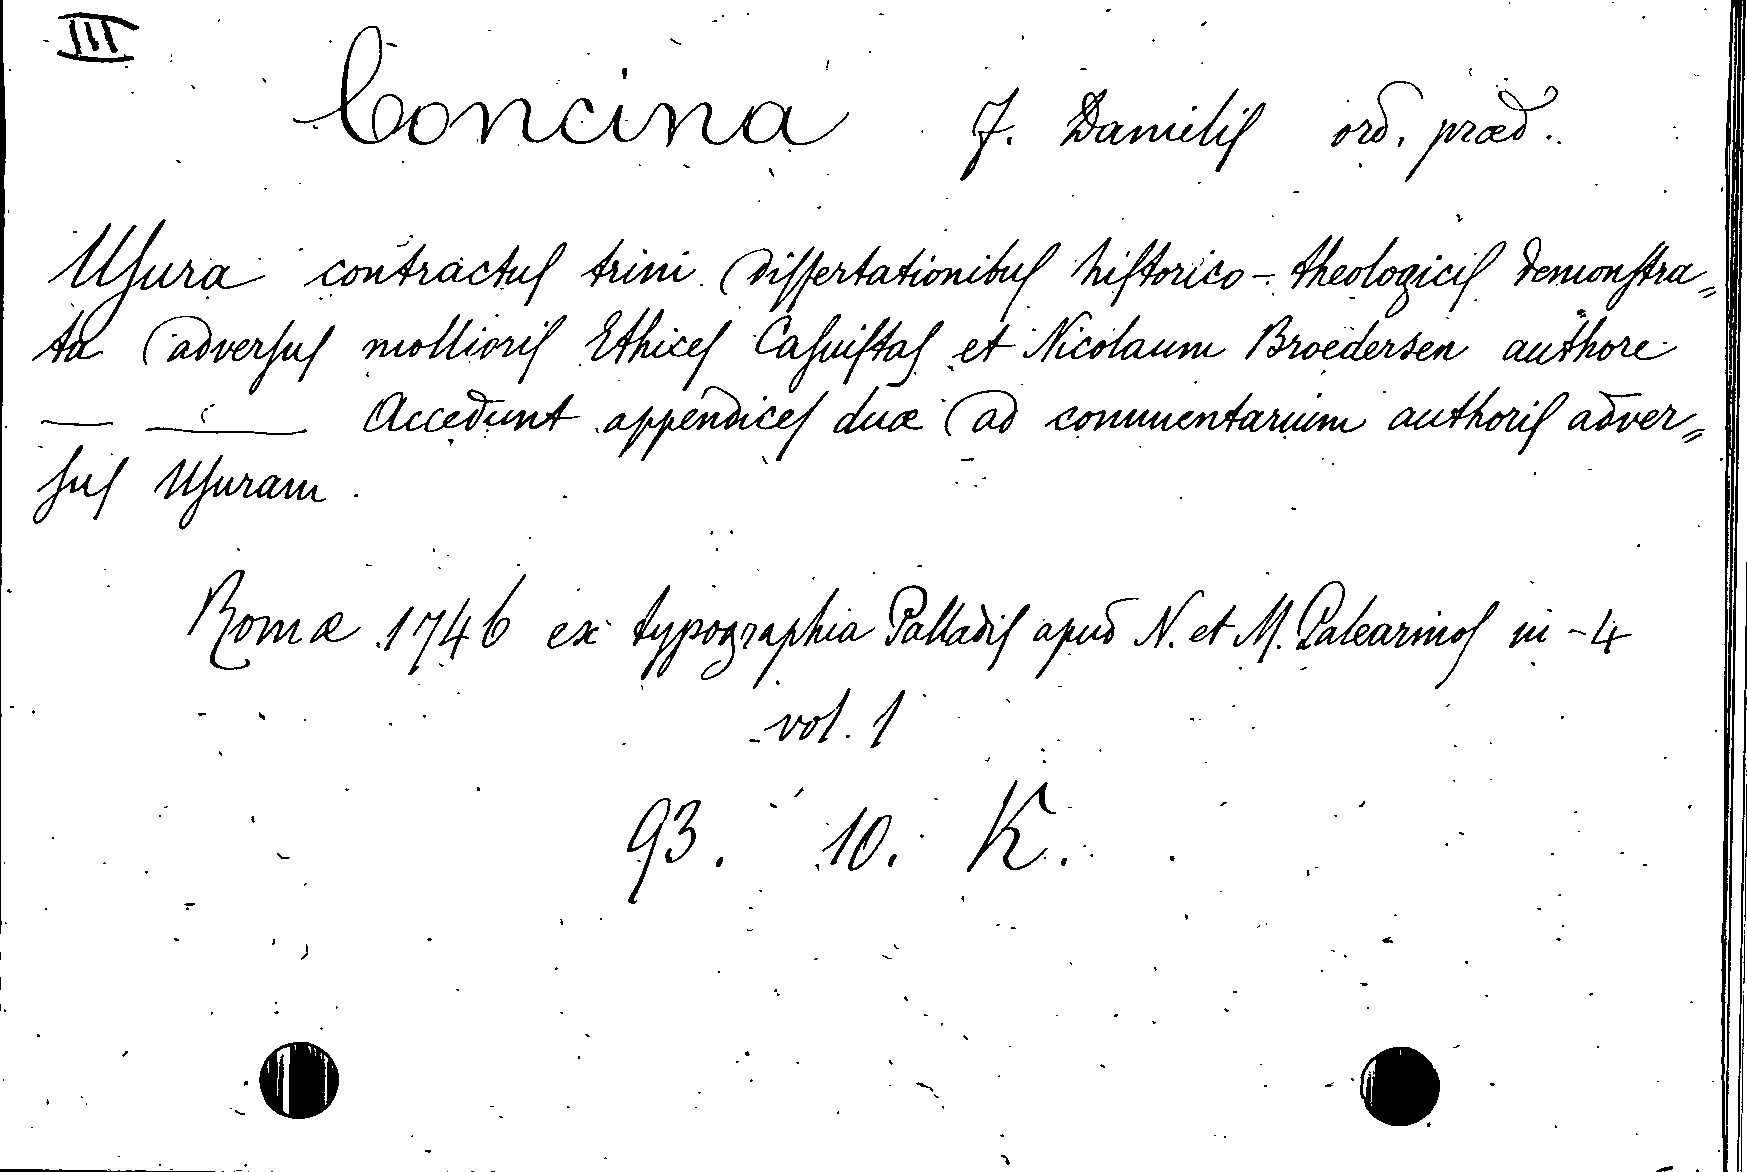 III
Concina F. Danielis ord. præd.
Usura contractus trini dissertationibus historico-theologicis demonstra„
ta adversus mollioris Ethices Casuistas et Nicolaum Broedersen authore
— — Accedunt appendices duæ ad commentarium authoris adver„
sus Usuram.
Romæ 1746 ex typographia Palladis apud N. et M. Palearinos in-4
vol. 1
93. 10. K.